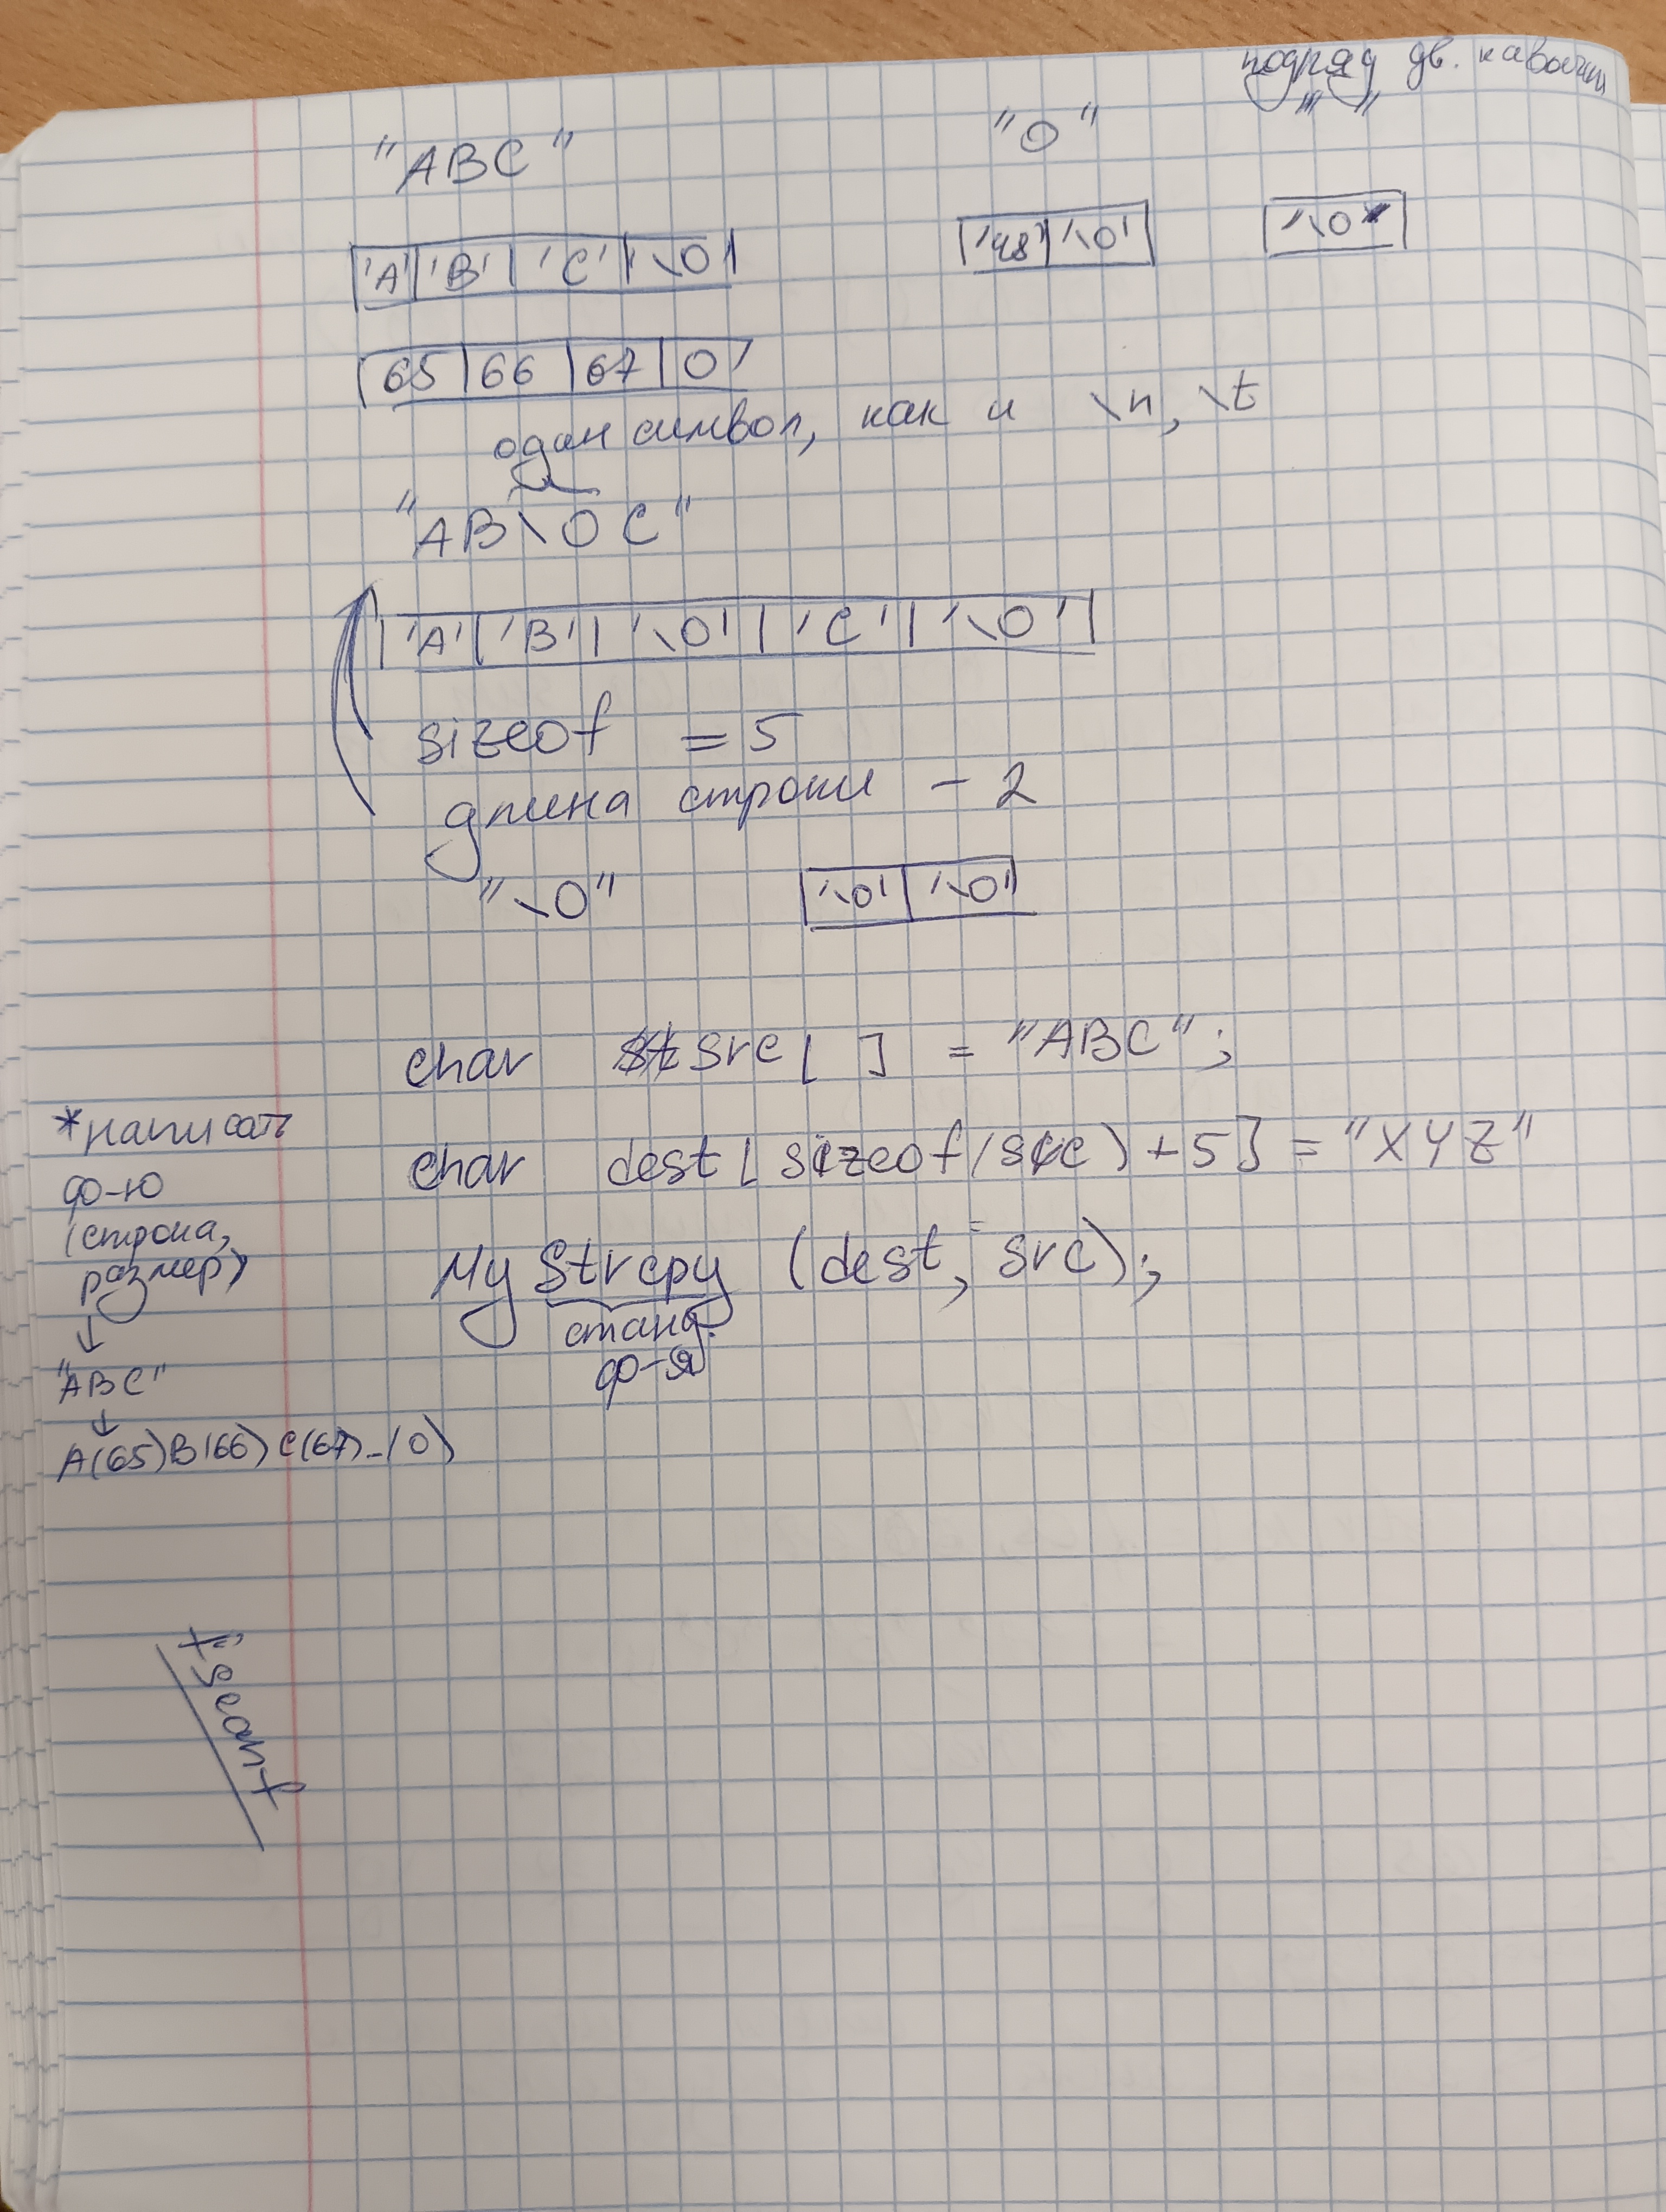 подряд дв. кавычки
"ABC" "0" ""
'A' 'B' 'C' '\0 '48' '\0' '\0'
65 66 67 0
один символ, как и \n, \t
"AB\0C"
'A' 'B' '\0' 'C' '\0'
sizeof = 5
длина строки - 2
"\0" '\0' '\0'
char src[ ] = "ABC";
char dest[sizeof(src)+5] = "XYZ"
My Strcpy (dest, src);
станд.
ф-я
*написать
ф-ю
(строка,
размер)
↓
"ABC"
↓
A(65)B(66)C(67)_(0)
scanf